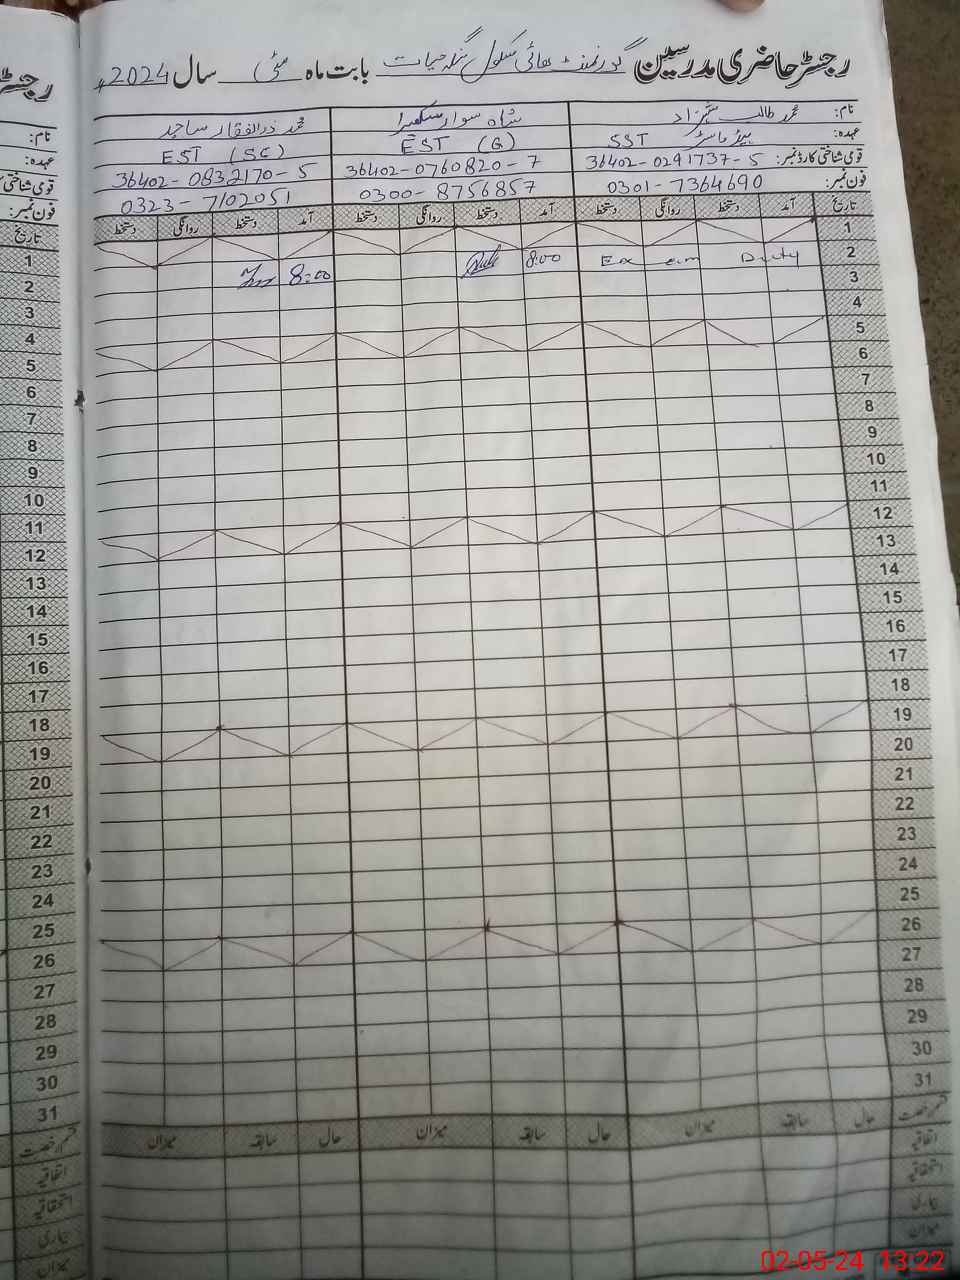 رجسٹر حاضری مدرسین گورنمنٹ ہائی سکول بنگہ حیات بابت ماہ مئی سال 2024ء
نام: محمد طالب شہزاد شاہ سوار سکھیرا محمد ذوالفقار ساجد
عہدہ: ہیڈ ماسٹر SST EST (G) EST (SC)
قومی شناختی کارڈ نمبر: 36402-0291737-5 36402-0760820-7 36402-0832170-5
فون نمبر: 0301-7364690 0300-8756857 0323-7102051
تاریخ آمد دستخط روانگی دستخط آمد دستخط روانگی دستخط آمد دستخط روانگی دستخط
1
2 Exam Duty 8:00 8:00
3
4
5
6
7
8
9
10
11
12
13
14
15
16
17
18
19
20
21
22
23
24
25
26
27
28
29
30
31
قسم رخصت حال سابقہ میزان حال سابقہ میزان حال سابقہ میزان
اتفاقیہ
استحقاقیہ
بیماری
میزان
رجسٹر
نام:
عہدہ:
قومی شناختی
فون نمبر:
تاریخ
1
2
3
4
5
6
7
8
9
10
11
12
13
14
15
16
17
18
19
20
21
22
23
24
25
26
27
28
29
30
31
قسم رخصت
اتفاقیہ
استحقاقیہ
بیماری
میزان
02-05-24 13:22